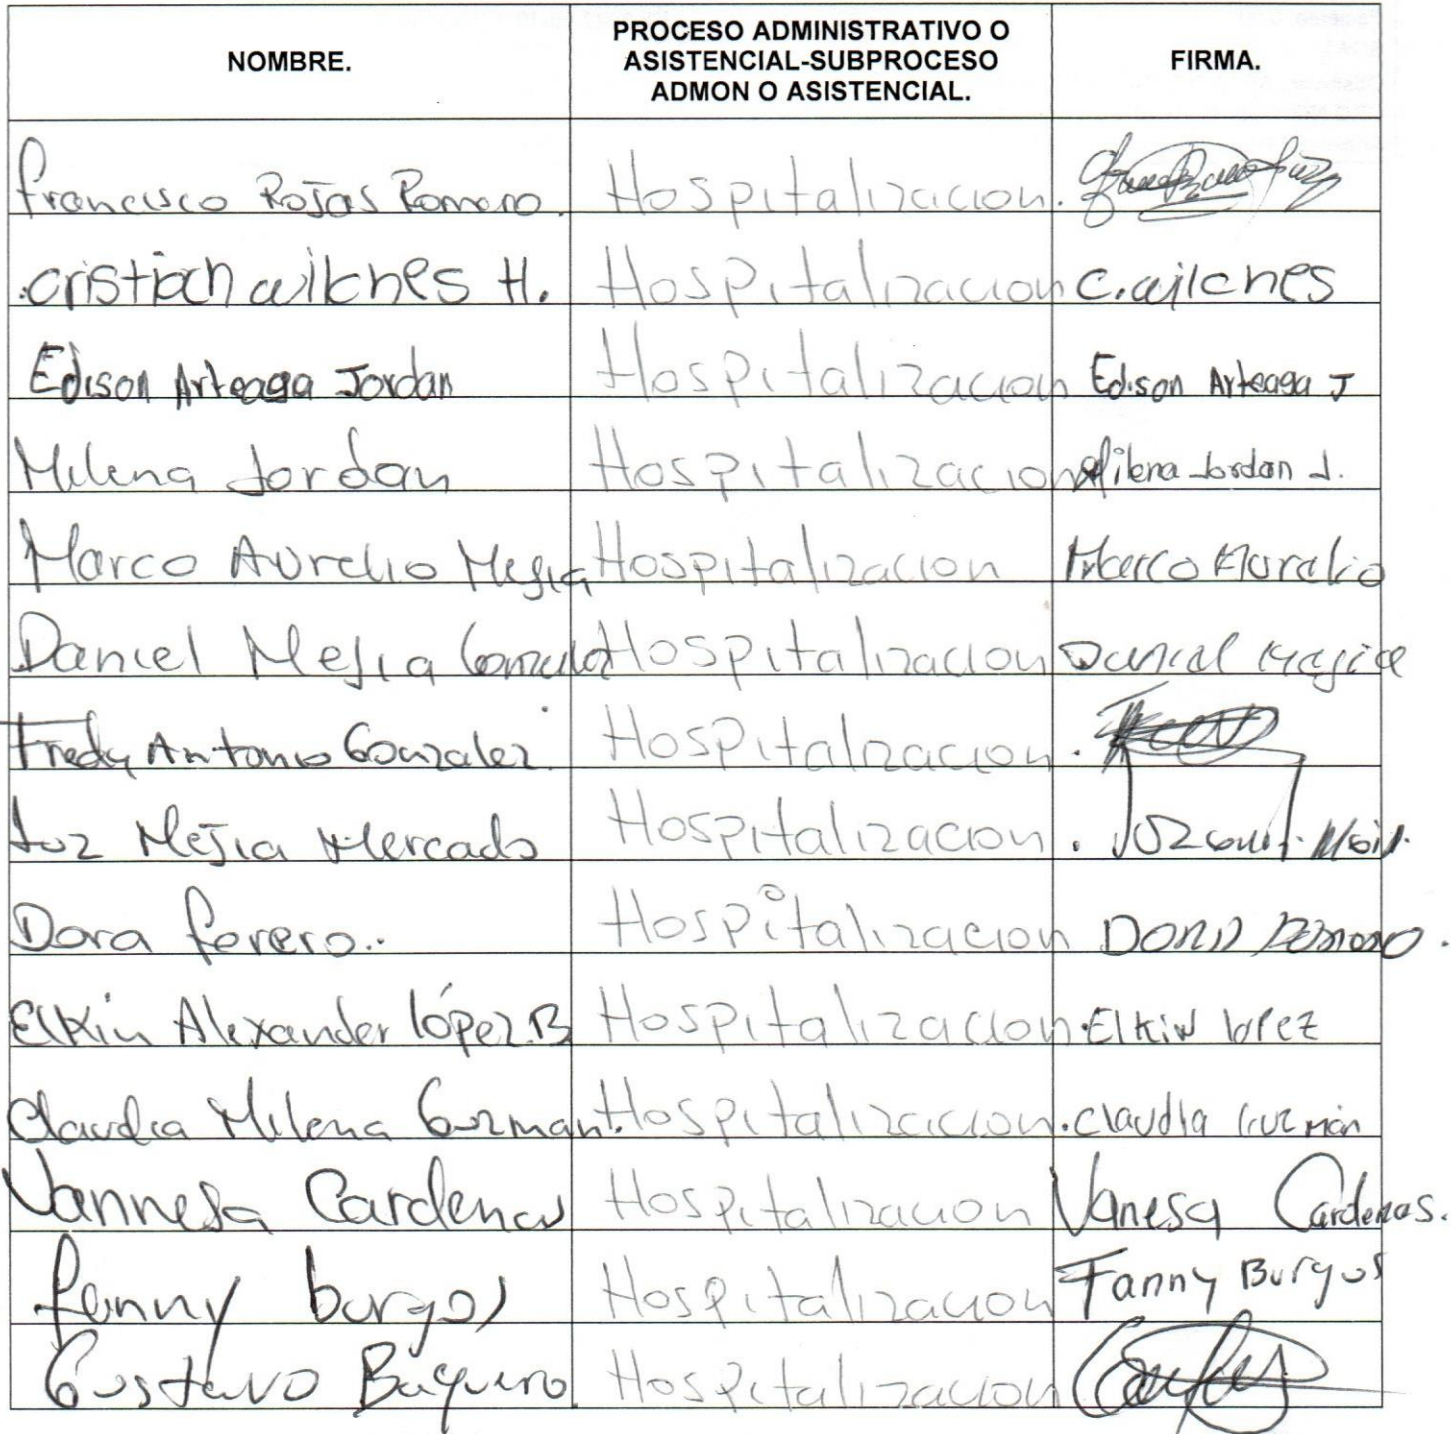 NOMBRE. PROCESO ADMINISTRATIVO O ASISTENCIAL-SUBPROCESO ADMON O ASISTENCIAL. FIRMA.
Francisco Rojas Romero. Hospitalizacion.
cristian wilches H. Hospitalizacion C. wilches
Edison Arteaga Jordan Hospitalizacion Edison Arteaga J
Milena Jordan Hospitalizacion Milena Jordan J.
Marco Aurelio Mejia Hospitalizacion Marco Aurelio
Daniel Mejia Gonzalez Hospitalizacion Daniel Mejia
Fredy Antonio Gonzalez. Hospitalizacion.
Luz Mejia Mercado Hospitalizacion.
Dora forero.. Hospitalizacion
Elkin Alexander López.B Hospitalizacion. Elkin lopez
Claudia Milena Guzman. Hospitalizacion. Claudia Guzmán
Vannesa Cardenas Hospitalizacion Vanesa Cardenas.
fanny burgos Hospitalizacion Fanny Burgos
Gustavo Baquero Hospitalizacion